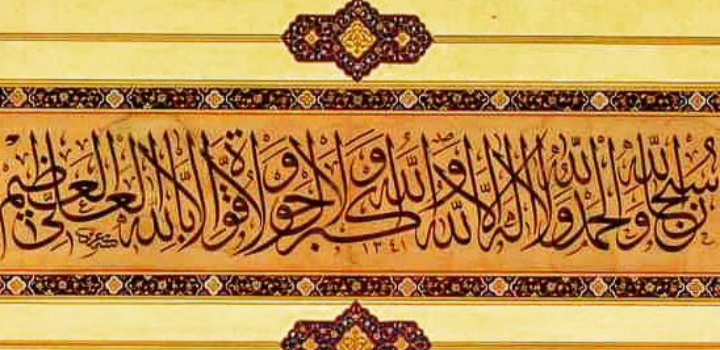 سبحان الله والحمد لله ولا إله إلا الله والله أكبر ولا حول ولا قوة إلا بالله العلي العظيم
١٣٤١